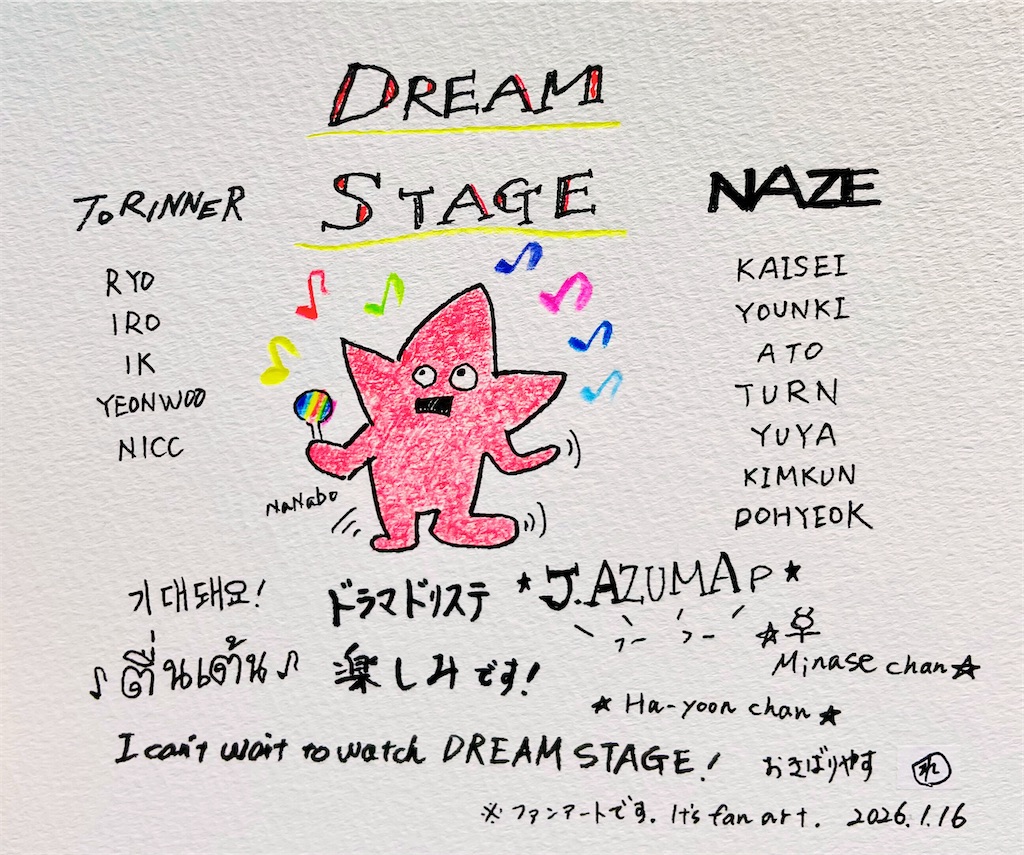 DREAM
STAGE
TORINNER
RYO
IRO
IK
YEONWOO
NICC
NAZE
KAISEI
YOUNKI
ATO
TURN
YUYA
KIMKUN
DOHYEOK
NaNabo
기대돼요!
♪ตื่นเต้น♪
ドラマドリステ
楽しみです!
★J.AZUMA P★
フー フー
★☿
Minase chan★
★Ha-yoon chan★
I can't wait to watch DREAM STAGE!
おきばりやす
れ
※ファンアートです. It's fan art. 2026.1.16